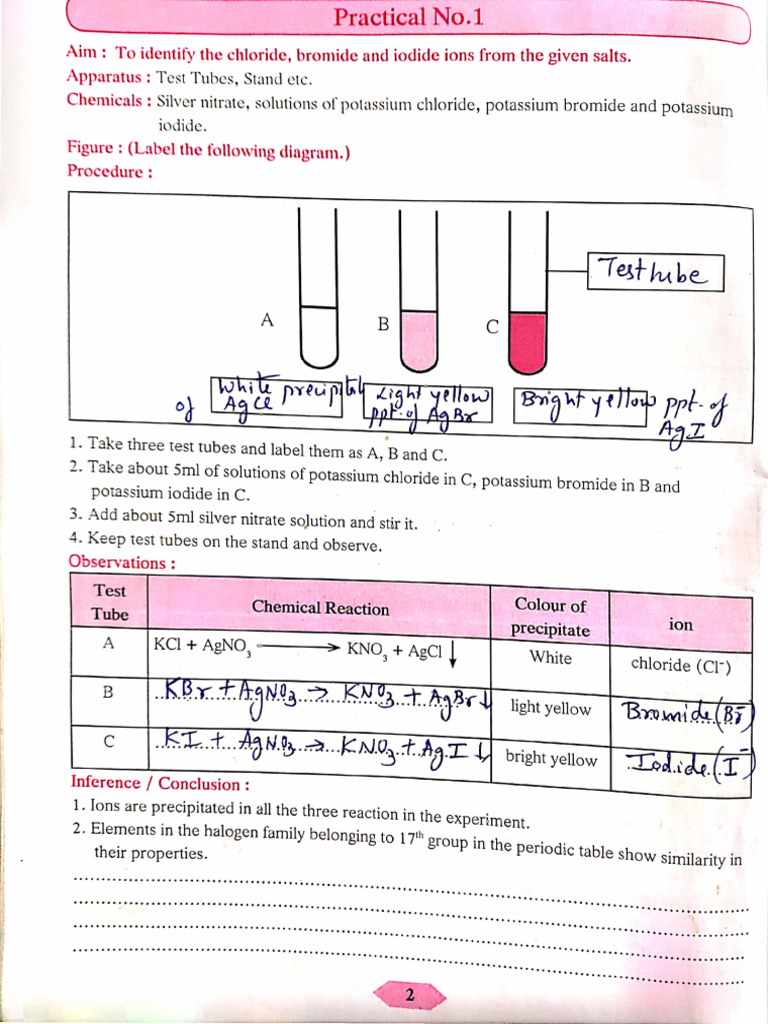 Practical No.1
Aim : To identify the chloride, bromide and iodide ions from the given salts.
Apparatus : Test Tubes, Stand etc.
Chemicals : Silver nitrate, solutions of potassium chloride, potassium bromide and potassium
iodide.
Figure : (Label the following diagram.)
Procedure :
Test tube
A
B
C
White precipitate
of AgCl
Light yellow
ppt. of AgBr
Bright yellow ppt. of
AgI
1. Take three test tubes and label them as A, B and C.
2. Take about 5ml of solutions of potassium chloride in C, potassium bromide in B and
potassium iodide in C.
3. Add about 5ml silver nitrate solution and stir it.
4. Keep test tubes on the stand and observe.
Observations :
Test Tube | Chemical Reaction | Colour of precipitate | ion
A | KCl + AgNO₃ ⟶ KNO₃ + AgCl ↓ | White | chloride (Cl⁻)
B | KBr + AgNO₃ → KNO₃ + AgBr ↓ | light yellow | Bromide (Br⁻)
C | KI + AgNO₃ → KNO₃ + AgI ↓ | bright yellow | Iodide (I⁻)
Inference / Conclusion :
1. Ions are precipitated in all the three reaction in the experiment.
2. Elements in the halogen family belonging to 17th group in the periodic table show similarity in
their properties.
2